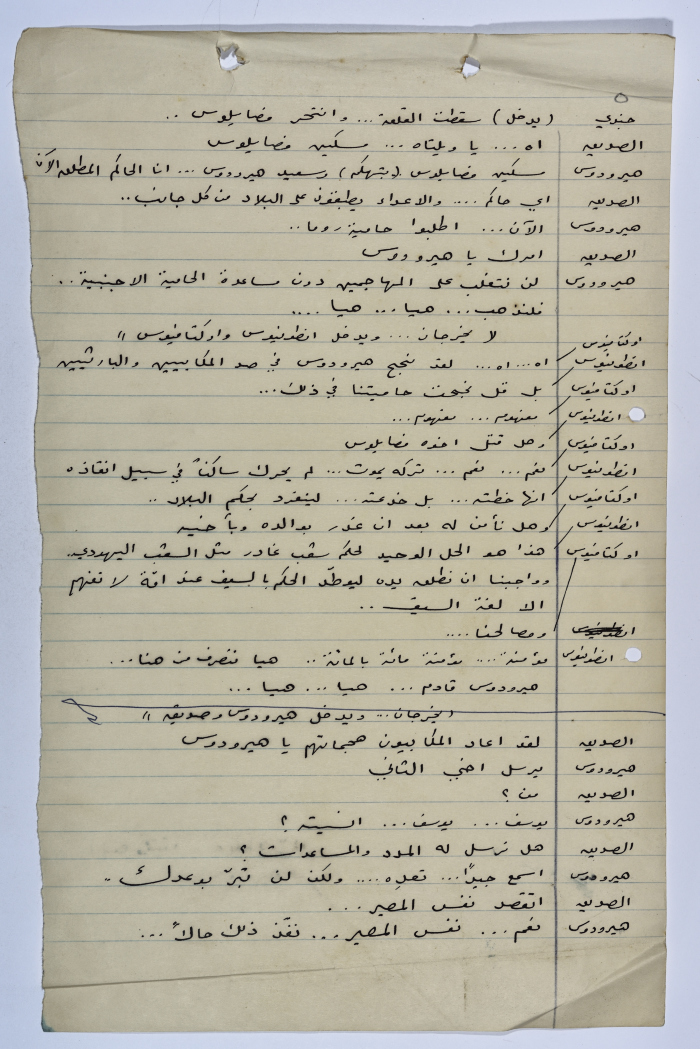 جندي (يدخل) سقطت القلعة... وانتحر فضايلوس ..
الصديق اه... يا ويلتاه... مسكين فضايلوس
هيرودوس مسكين فضايلوس (بتهكم) وسعيد هيرودوس... انا الحاكم المطلق الآن
الصديق اي حاكم.... والاعداء يطبقون على البلاد من كل جانب..
هيرودوس الآن... اطلبوا حامية روما..
الصديق امرك يا هيرودوس
هيرودوس لن نتغلب على المهاجمين دون مساعدة الحامية الاجنبية..
فلنذهب... هيا... هيا....
يخرجان... ويدخل انطونيوس واوكتافيوس "
اوكتافيوس
انطونيوس اه... اه... لقد نجح هيرودوس في صد المكابيين والبارثيين
اوكتافيوس بل قل نجحت حاميتنا في ذلك...
انطونيوس مفهوم... مفهوم...
اوكتافيوس وهل قتل اخوه فضايلوس
انطونيوس نعم... نعم... تركه يموت... لم يحرك ساكناً في سبيل انقاذه
اوكتافيوس انها خطته... بل خدعته... لينفرد بحكم البلاد ..
انطونيوس وهل نأمن له بعد ان غدر بوالده وبأخيه
اوكتافيوس هذا هو الحل الوحيد لحكم شعب غادر مثل الشعب اليهودي..
وواجبنا ان نطلق يده ليوطّد الحكم بالسيف عند امّة لا تفهم
الا لغة السيف ..
انطونيوس ومصالحنا....
انطونيوس مؤمنة.... مؤمنة مائة بالمائة.. هيا ننصرف من هنا...
هيرودوس قادم... هيا... هيا...
(يخرجان... ويدخل هيرودوس وصديقه "
الصديق لقد اعاد المكابيون هجماتهم يا هيرودوس
هيرودوس يرسل اخي الثاني
الصديق من؟
هيرودوس يوسف... يوسف... انسيته؟
الصديق هل نرسل له المدد والمساعدات؟
هيرودوس اسمع جيدًا... تعده.... ولكن لن تبرّ بوعدك ..
الصديق اتقصد نفس المصير...
هيرودوس نعم... نفس المصير... نفّذ ذلك حالاً...